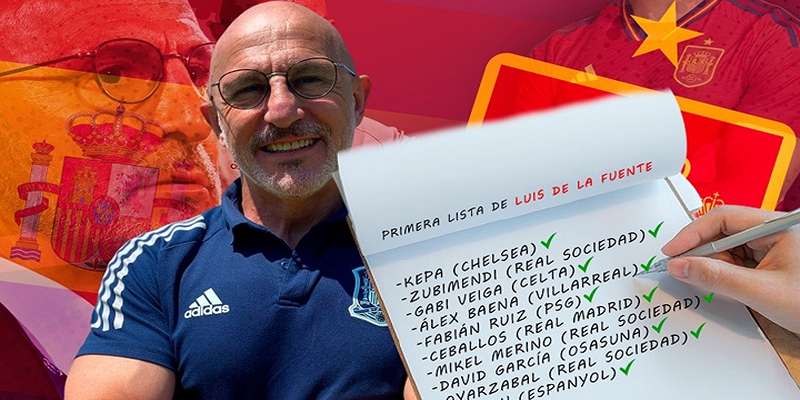 adidas
PRIMERA LISTA DE LUIS DE LA FUENTE
-KEPA (CHELSEA)
-ZUBIMENDI (REAL SOCIEDAD)
-GABI VEIGA (CELTA)
-ÁLEX BAENA (VILLARREAL)
-FABIÁN RUIZ (PSG)
-CEBALLOS (REAL MADRID)
-MIKEL MERINO (REAL SOCIEDAD)
-DAVID GARCÍA (OSASUNA)
OYARZABAL (REAL SOCIEDAD)
(ESPANYOL)